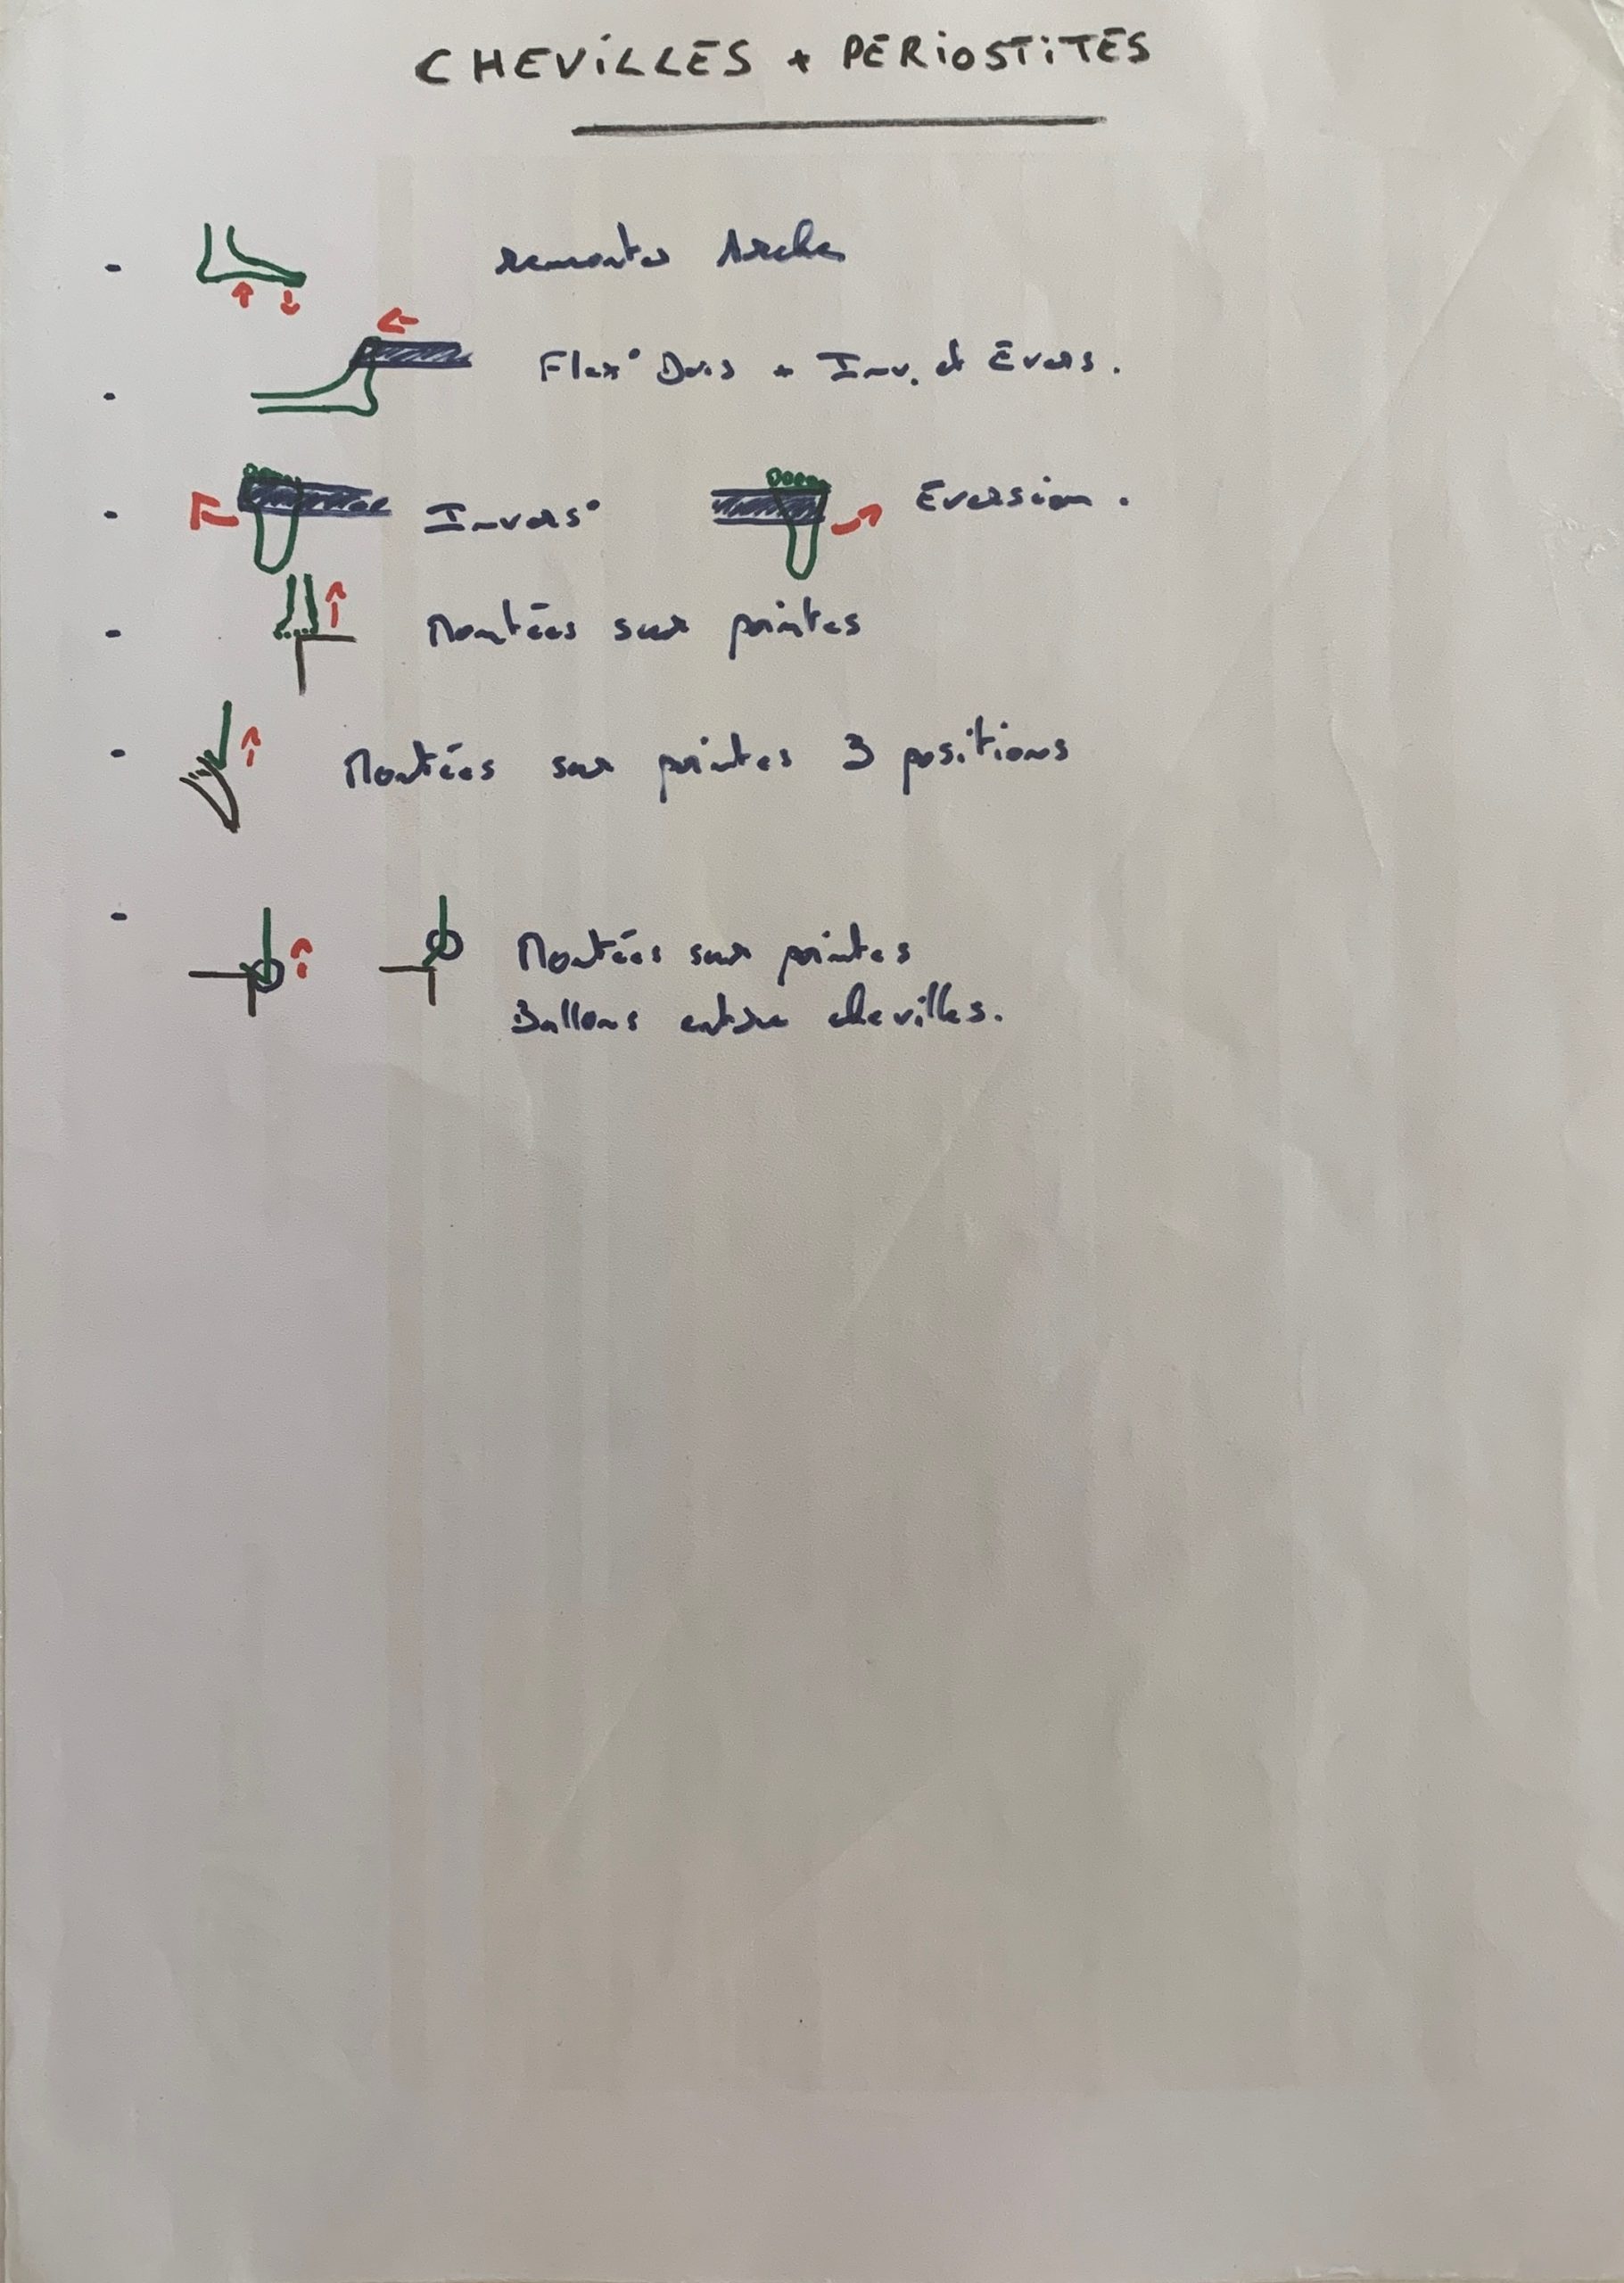 CHEVILLES + PERIOSTITES
- remonter Arche
- Flex° Dors + Inv. et Evers.
- Invers° Eversion.
- Montées sur pointes
- Montées sur pointes 3 positions
- Montées sur pointes
Ballons entre chevilles.